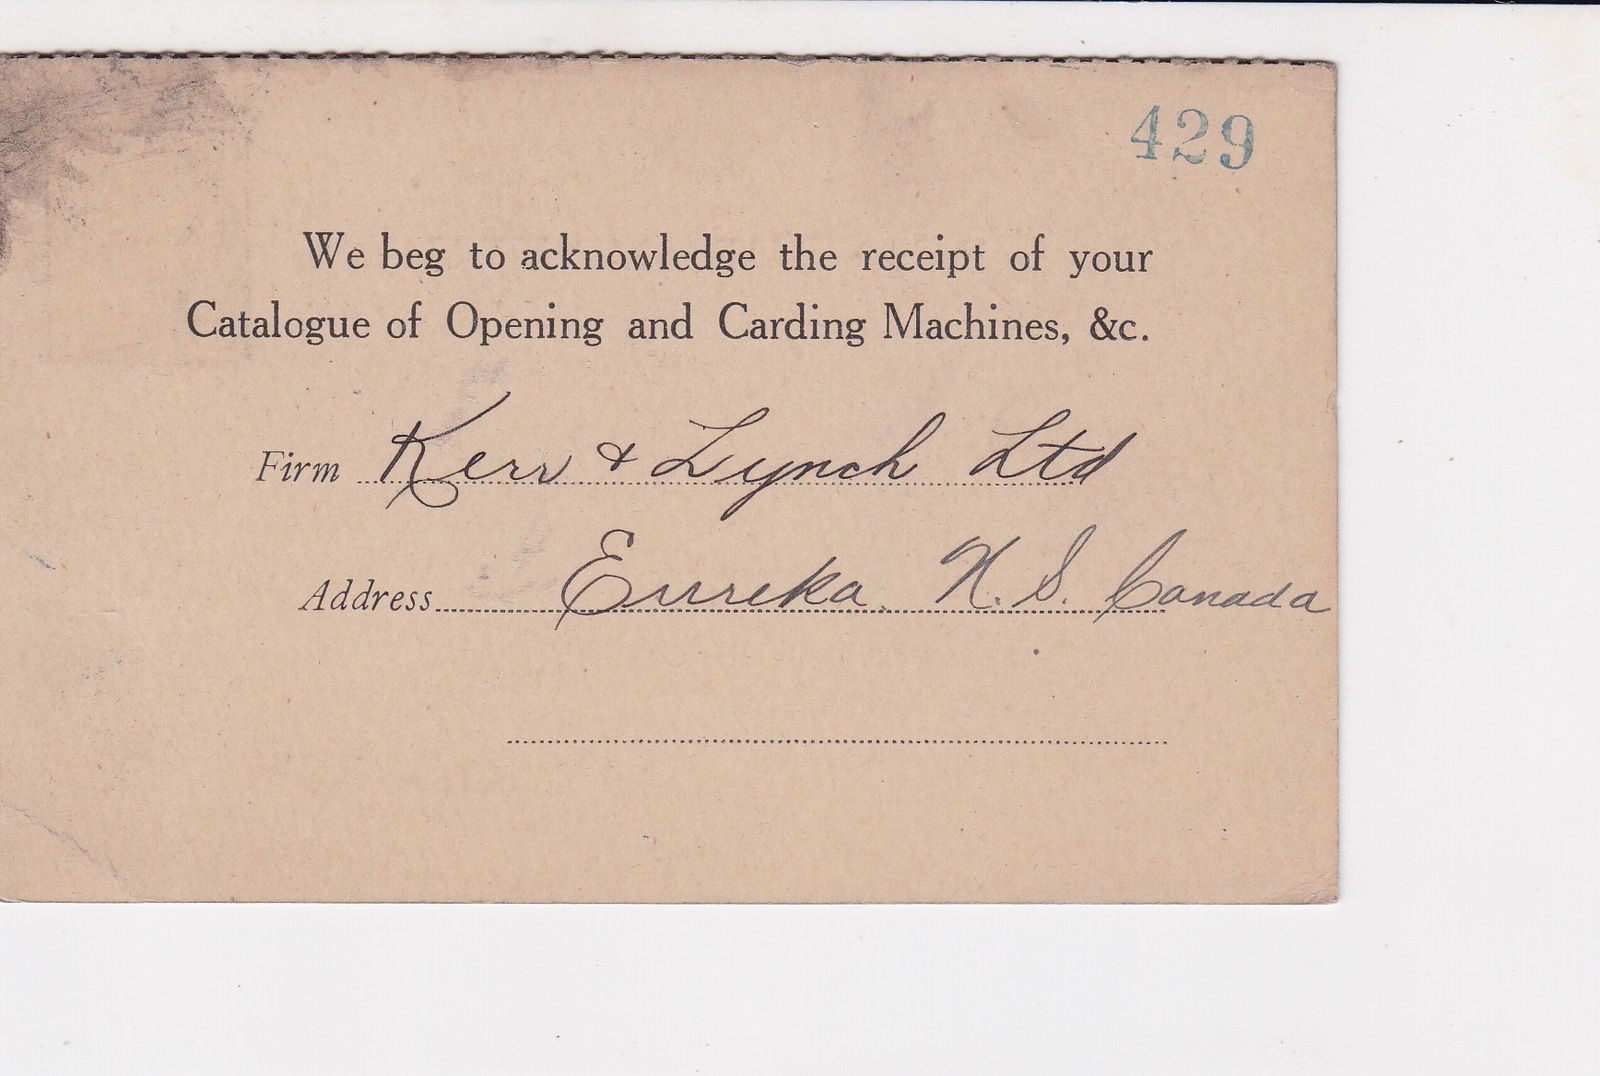 429
We beg to acknowledge the receipt of your
Catalogue of Opening and Carding Machines, &c.
Firm Kerr & Lynch Ltd
Address Eureka, N. S. Canada